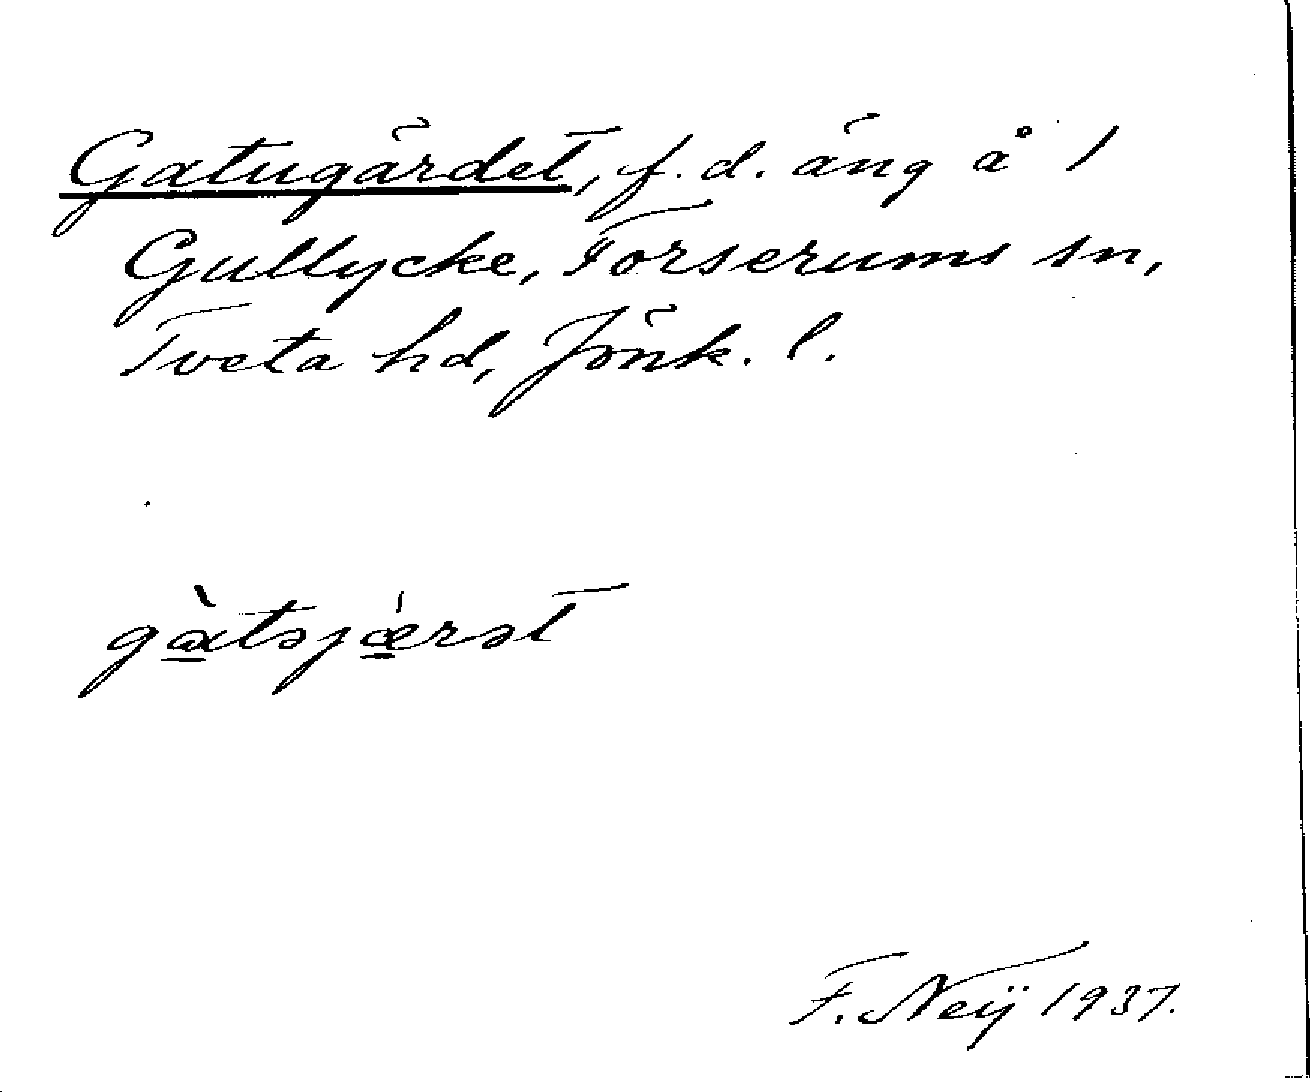 Gatugärdet, f.d. äng å 1
Gullycke, Forserums sn,
Tveta hd, Jönk. l.
gàtəjærət
F. Neÿ 1937.